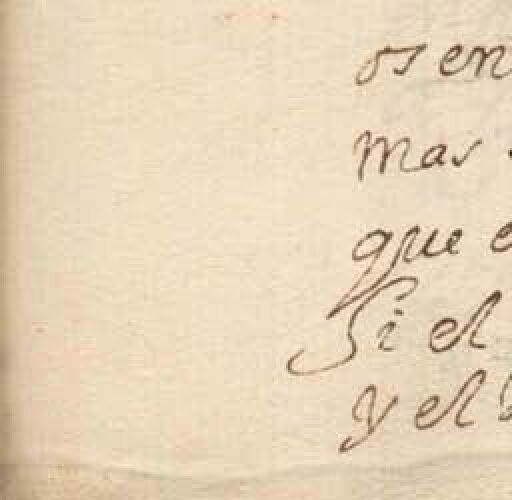 os en
mas
que e
Si el
y el